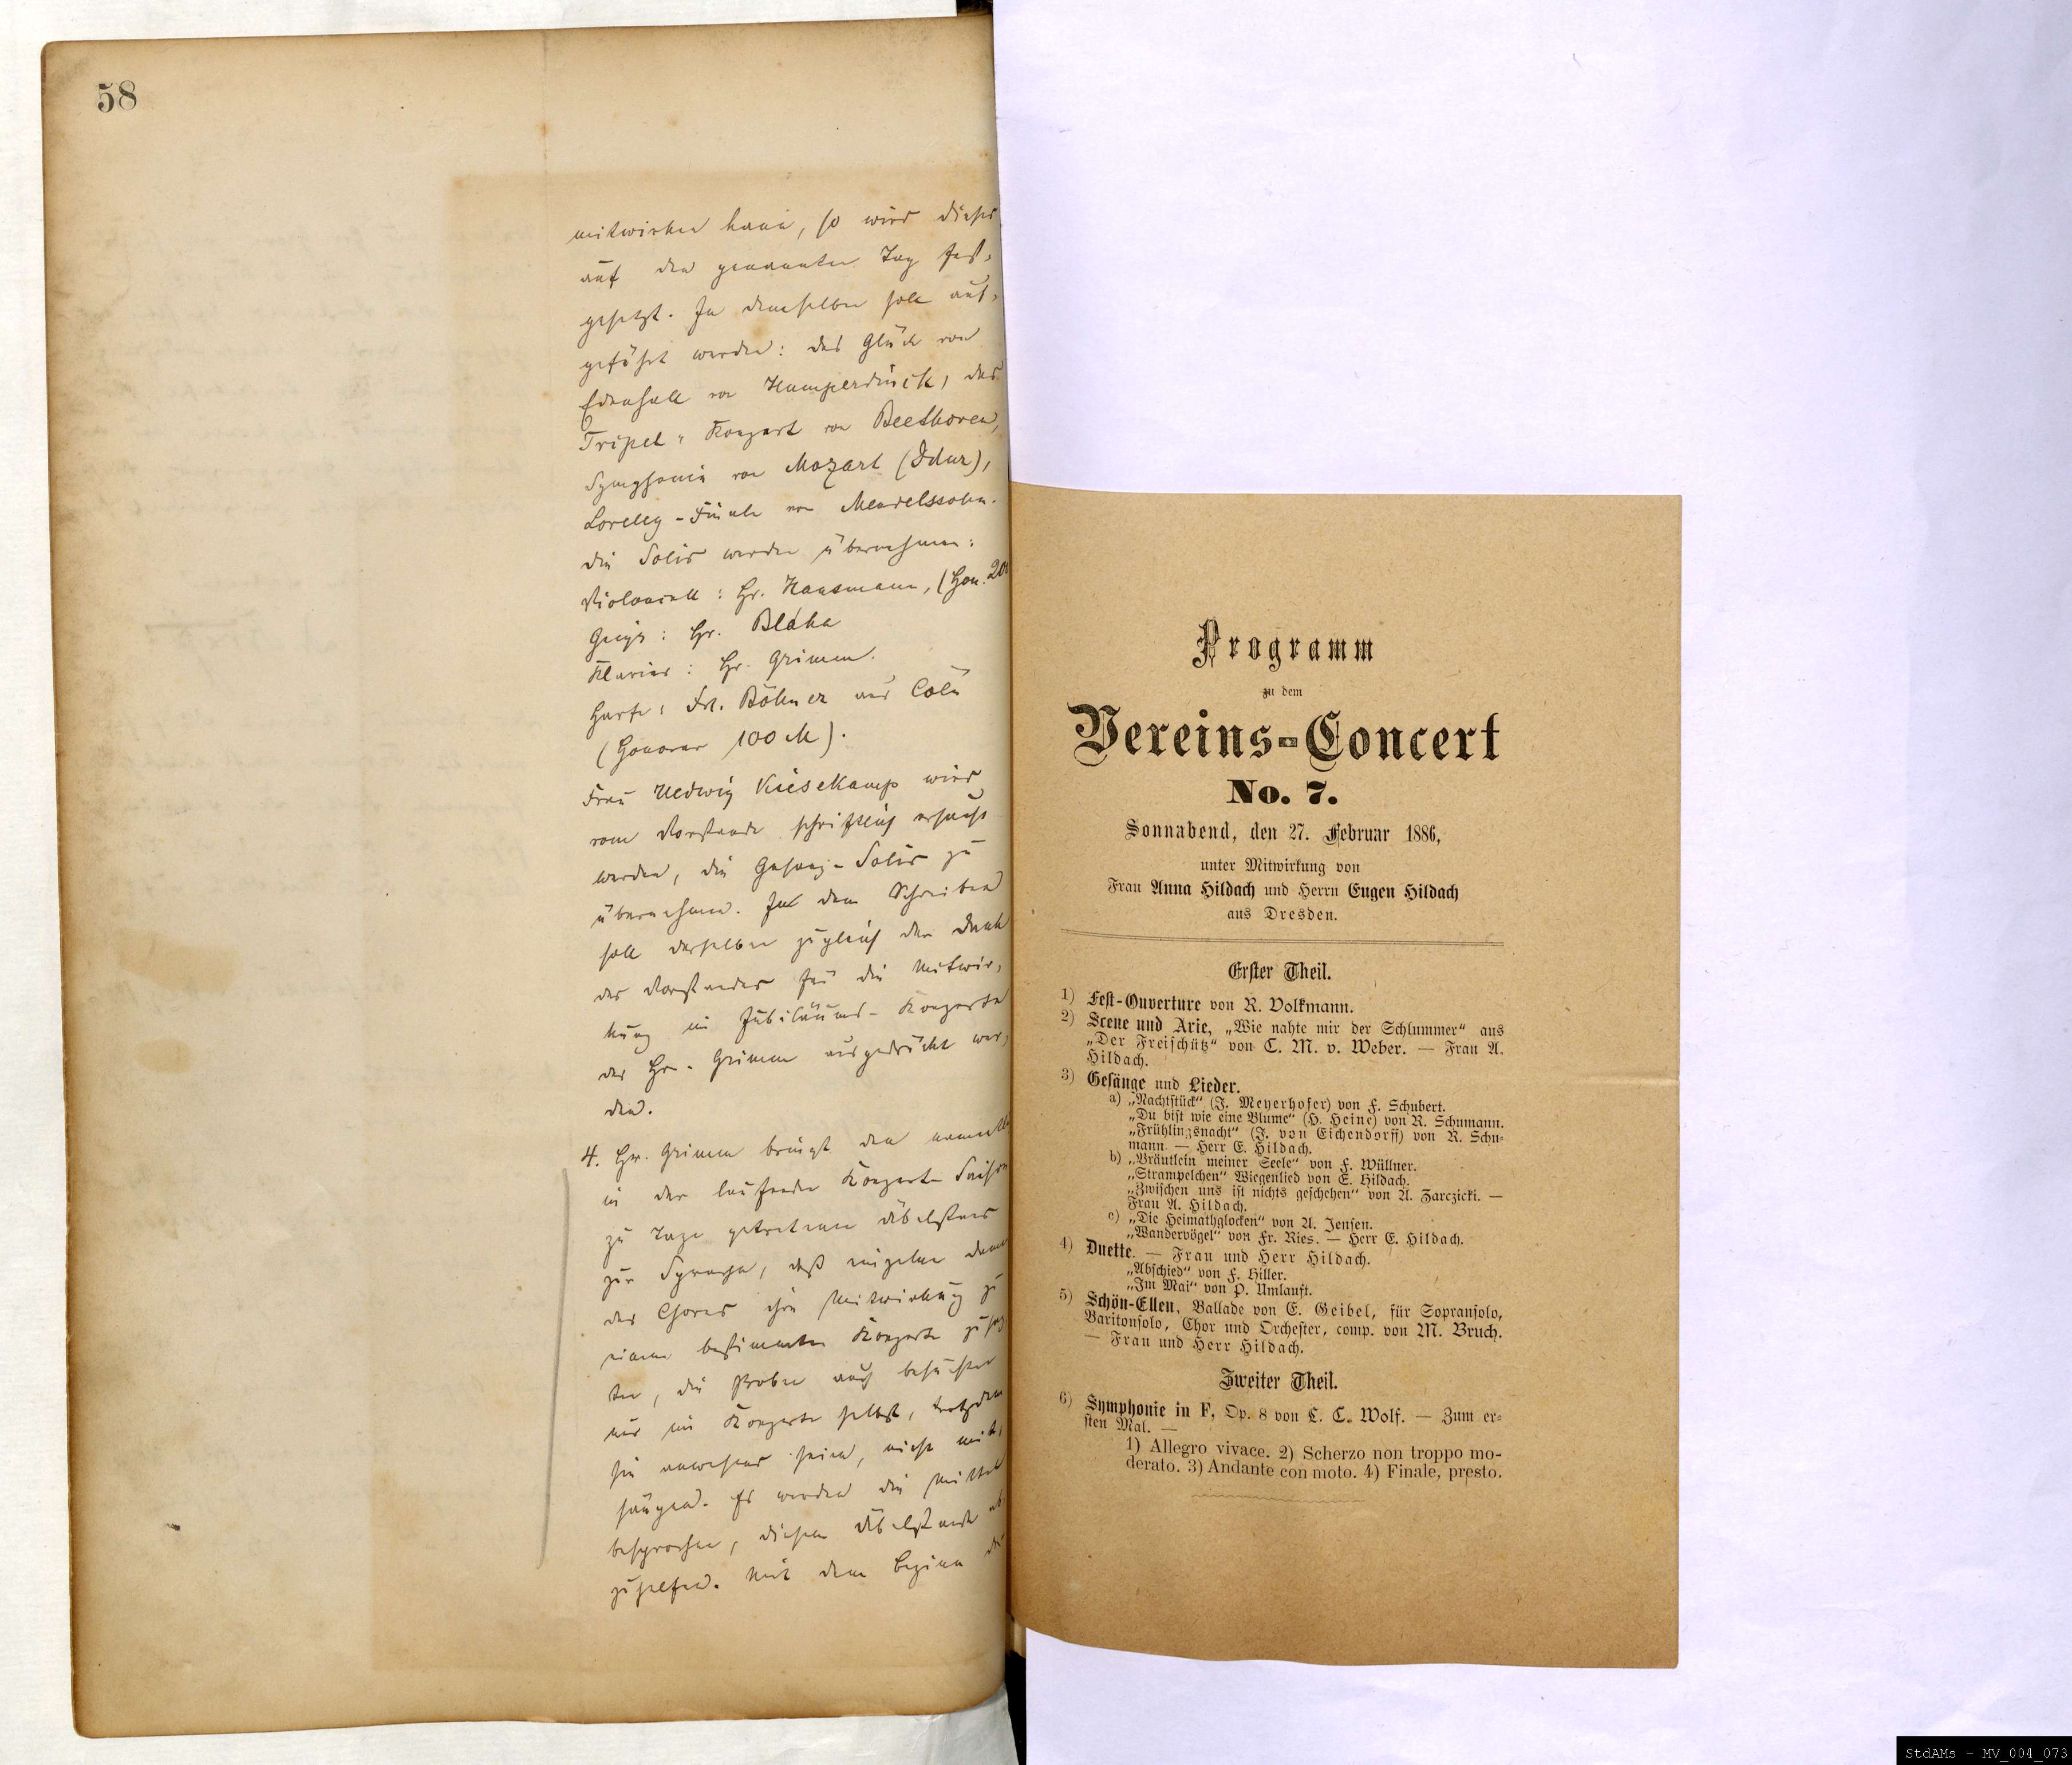 58
mitwirken kann, so wird dieses
auf den genannten Tag fest-
gesetzt. In demselben soll auf-
geführt werden: das Glück von
Edenhall von Humperdinck, das
Tripel-Konzert von Beethoven,
Symphonie von Mozart (Ddur),
Loreley-Finale von Mendelssohn.
Die Solis werden übernehmen:
Violoncell: Hr. Hausmann, (Hon. 200
Geige: Hr. Bláha
Klavier: Hr. Grimm.
Harfe: Frl. Böhmer aus Cöln
(Honorar 100 M).
Frau Hedwig Kiesekamp wird
vom Vorstande schriftlich ersucht
werden, die Gesang-Solis zu
übernehmen. In dem Schreiben
soll derselben zugleich der Dank
des Vorstandes für die Mitwir-
kung im Jubiläums-Konzerte
des Hr. Grimm ausgedrückt wer-
den.
4. Hr. Grimm bringt den namentlich
in der laufenden Konzert-Saison
zu Tage getretenen Übelstand
zur Sprache, daß einzelne Damen
des Chores ihre Mitwirkung zu
einem bestimmten Konzerte zusag-
ten, die Proben auch besuchten
und im Konzerte selbst, trotzdem
sie anwesend seien, nicht mit-
sängen. Es werden die Mittel
besprochen, diesem Übelstande ab-
zuhelfen. Mit dem Beginn der
Programm
zu dem
Vereins-Concert
No. 7.
Sonnabend, den 27. Februar 1886,
unter Mitwirkung von
Frau Anna Hildach und Herrn Eugen Hildach
aus Dresden.
Erster Theil.
1) Fest-Ouverture von R. Volkmann.
2) Scene und Arie, „Wie nahte mir der Schlummer“ aus
„Der Freischütz“ von C. M. v. Weber. — Frau A.
Hildach.
3) Gesänge und Lieder.
a) „Nachtstück“ (J. Meyerhofer) von F. Schubert.
„Du bist wie eine Blume“ (H. Heine) von R. Schumann.
„Frühlingsnacht“ (J. von Eichendorff) von R. Schu-
mann. — Herr E. Hildach.
b) „Bräutlein meiner Seele“ von F. Wüllner.
„Strampelchen“ Wiegenlied von E. Hildach.
„Zwischen uns ist nichts geschehen“ von A. Zarczicki. —
Frau A. Hildach.
c) „Die Heimathglocken“ von A. Jensen.
„Wandervögel“ von Fr. Ries. — Herr E. Hildach.
4) Duette. — Frau und Herr Hildach.
„Abschied“ von F. Hiller.
„Im Mai“ von P. Umlauft.
5) Schön-Ellen, Ballade von E. Geibel, für Sopransolo,
Baritonsolo, Chor und Orchester, comp. von M. Bruch.
— Frau und Herr Hildach.
Zweiter Theil.
6) Symphonie in F, Op. 8 von L. C. Wolf. — Zum er-
sten Mal. —
1) Allegro vivace. 2) Scherzo non troppo mo-
derato. 3) Andante con moto. 4) Finale, presto.
StdAMs - MV_004_073